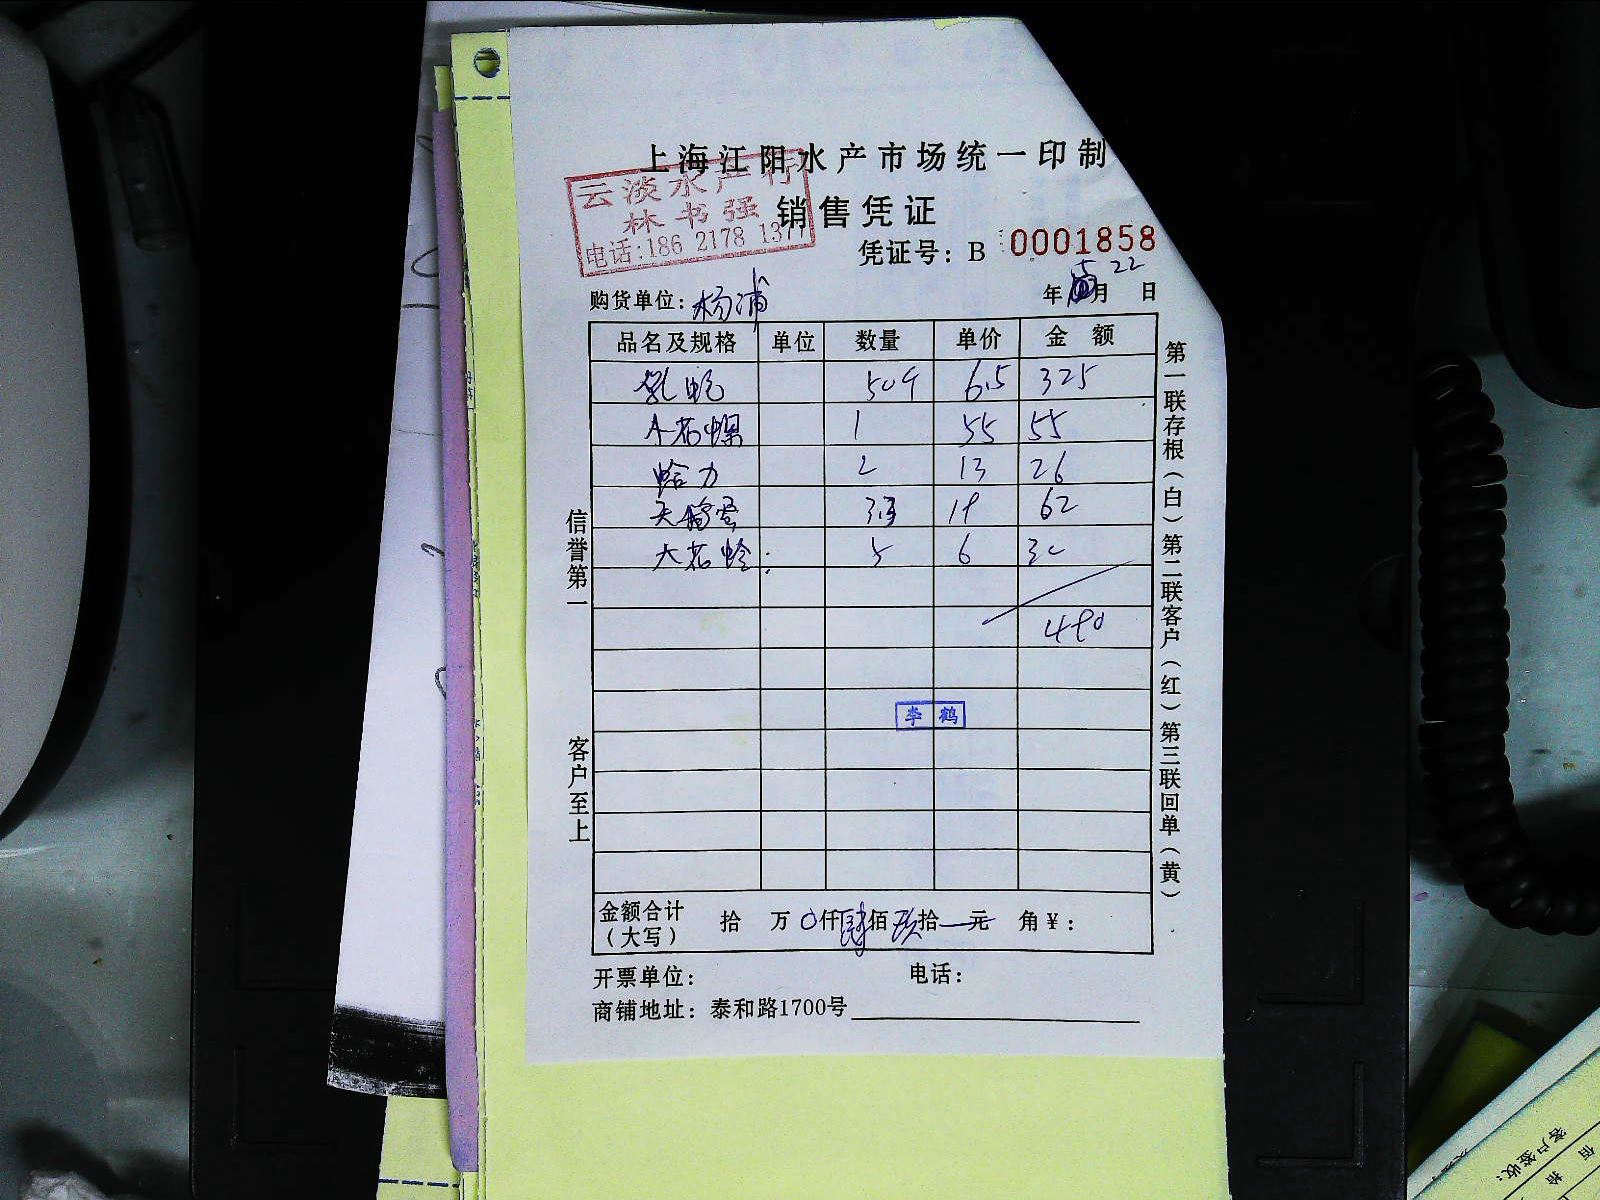 上海江阳水产市场统一印制
云淡水产行
林书强
电话:186 2178 1377
销售凭证
凭证号: B 0001858
购货单位: 杨浦
年 月 22 日
品名及规格 单位 数量 单价 金额
50斤 6.5 325
花螺 1 55 55
蛤力 2 13 26
天鹅蛋 19 62
大花蛤 5 6 30
490
李鹤
金额合计(大写) 拾 万 0仟肆佰玖拾 元 角 ¥:
开票单位: 电话:
商铺地址: 泰和路1700号
信誉第一
客户至上
第一联存根(白)第二联客户(红)第三联回单(黄)
客户签收:
佰 拾